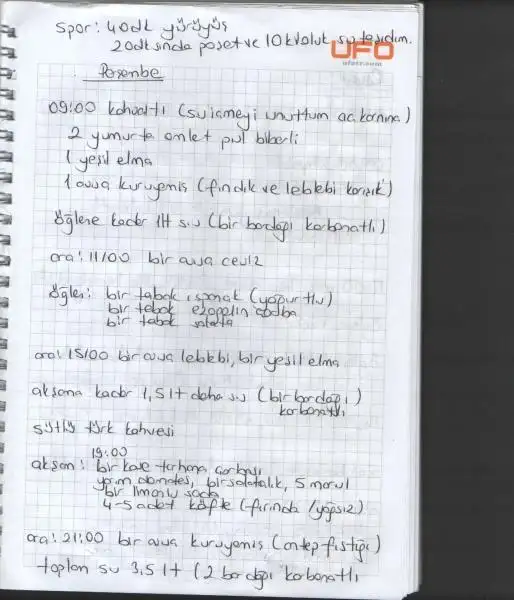 Spor: 40dk yürüyüş
20dk sında poşet ve 10 kiloluk su taşıdım.
UFO
Perşembe
09:00 kahvaltı (su içmeyi unuttum aç karnına)
2 yumurta omlet pul biberli
1 yeşil elma
1 avuç kuruyemiş (fındık ve leblebi karışık)
öğlene kadar 1lt su (bir bardağı karbonatlı)
ara: 11:00 bir avuç ceviz
öğlen: bir tabak ıspanak (yoğurtlu)
bir tabak ezogelin çorba
bir tabak salata
ara: 15:00 bir avuç leblebi, bir yeşil elma
akşama kadar 1,5 lt daha su (bir bardağı)
karbonatlı
sütlü türk kahvesi
19:00
akşam: bir kase tarhana çorbası
yarım domates, bir salatalık, 5 marul
bir limonlu soda
4-5 adet köfte (fırında / yağsız)
ara: 21:00 bir avuç kuruyemiş (antep fıstığı)
toplam su 3,5 lt (2 bardağı karbonatlı